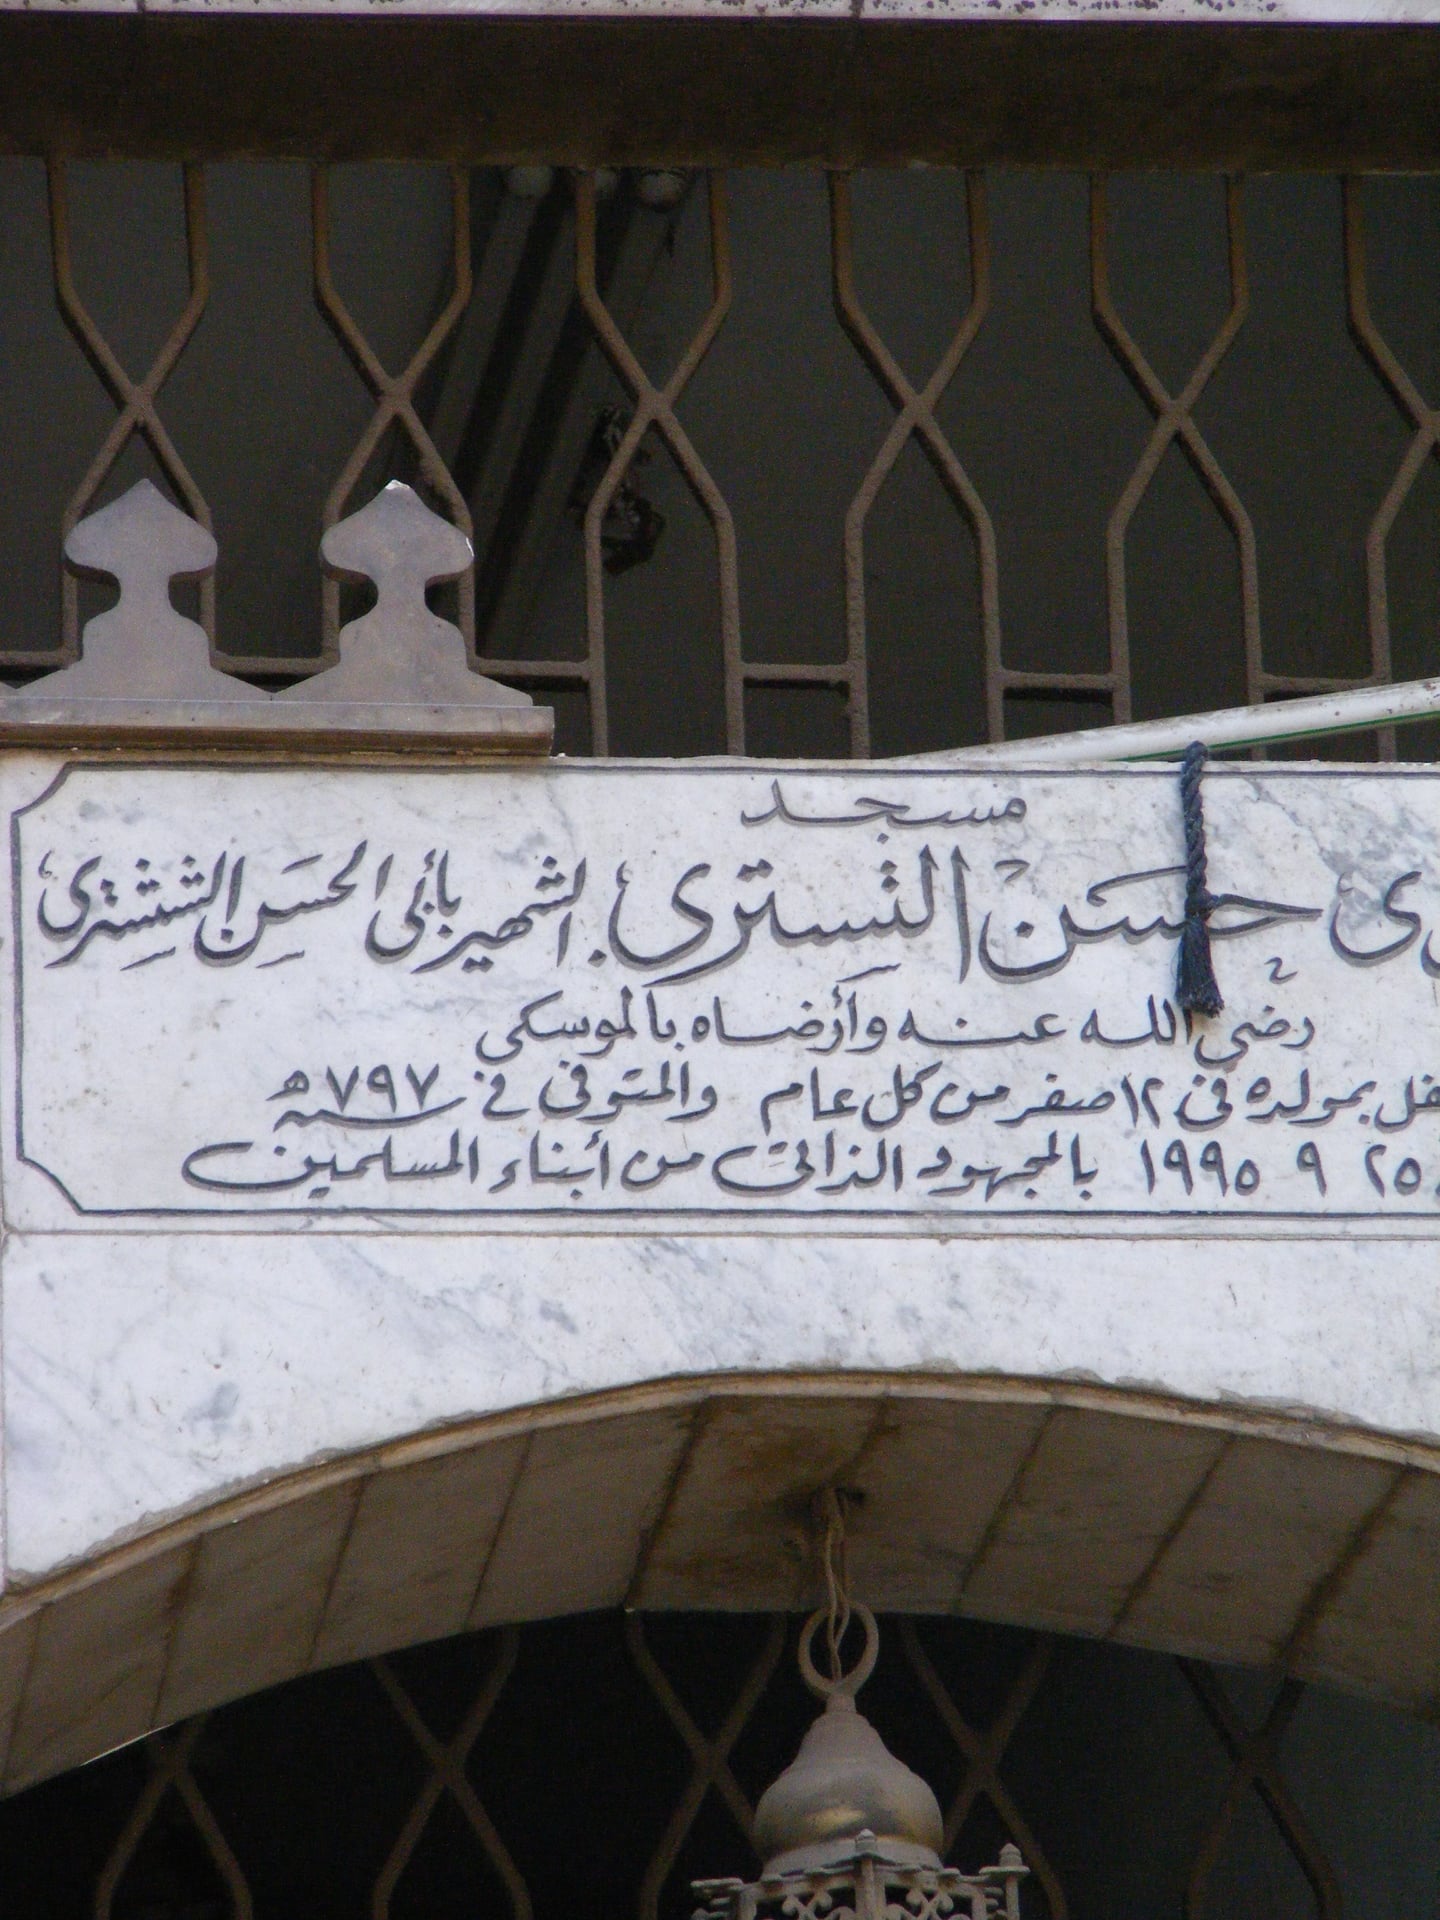 مسجد
حسن التسترى. الشهير بأبى الحسن الششترى
رضى الله عنه وأرضاه بالموسكى
بمولده فى ١٢ صفر من كل عام والمتوفى فى سنة ٧٩٧ھ
٢٥ ٩ ١٩٩٥ بالمجهود الذاتى من أبناء المسلمين